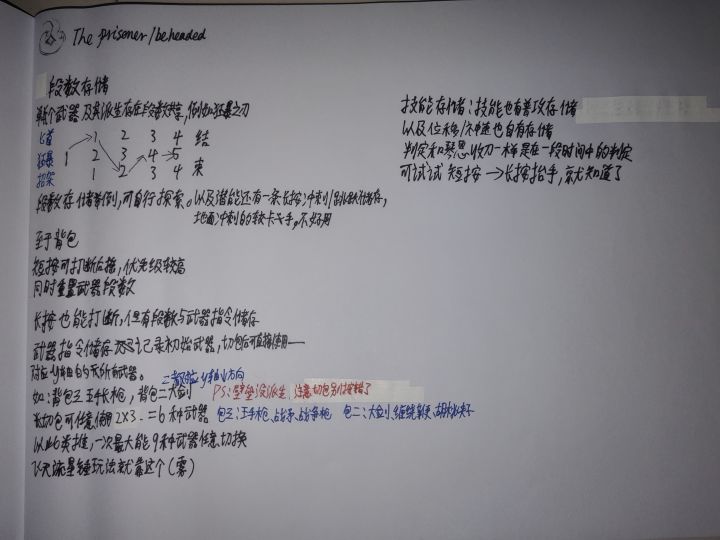 The prisoner/beheaded
段数存储
单个武器及其派生存在段数共享，例如狂暴之刃
匕首 1 2 3 4 结
狂暴 1 2 3 4 5
招架 1 2 3 4 束
段数存储举例，可自行探索。以及潜能还有一条长按冲刺
地面冲刺的较卡手，不好用
至于背包
短按可打断后摇，优先级较高
同时重置武器段数
长按也能打断，但有段数与武器指令储存
武器指令储存 记录初始武器，切包后可直接使用一
对应 的 所有武器。
如：背包三玉手长枪，背包二大剑 PS：壁垒没派生，注意切包别按错了
长切包可任意使用2X3=6种武器 包三：玉手枪、战矛、战争枪 包二：大剑、缠绕 夹子
以此类推，一次最大能9种武器任意切换
飞天流星锤玩法就靠这个（雾）
技能存储：技能也有普攻存储
以及位移/冲刺也自有存储
判定和琴思收刀一样是在一段时间中的判定
可试试 短按→长按抬手，就知道了